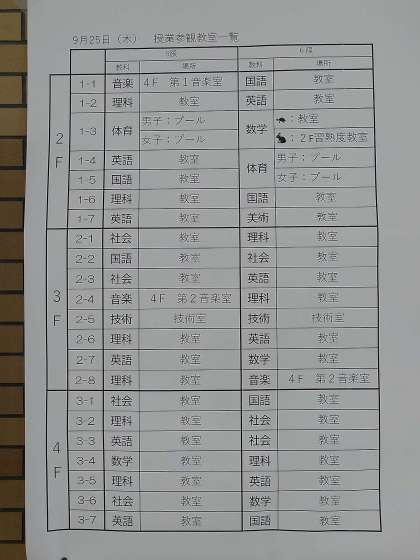 9月25日（木）　授業参観教室一覧
5限　6限
教科　場所　教科　場所
2F
1-1　音楽　4F　第1音楽室　国語　教室
1-2　理科　教室　英語　教室
1-3　体育　男子：プール　数学　：教室
女子：プール　：2F習熟度教室
1-4　英語　教室　体育　男子：プール
1-5　国語　教室　女子：プール
1-6　理科　教室　国語　教室
1-7　英語　教室　美術　教室
3F
2-1　社会　教室　理科　教室
2-2　国語　教室　社会　教室
2-3　社会　教室　英語　教室
2-4　音楽　4F　第2音楽室　理科　教室
2-5　技術　技術室　技術　技術室
2-6　理科　教室　英語　教室
2-7　英語　教室　数学　教室
2-8　理科　教室　音楽　4F　第2音楽室
4F
3-1　社会　教室　国語　教室
3-2　理科　教室　社会　教室
3-3　英語　教室　社会　教室
3-4　数学　教室　理科　教室
3-5　理科　教室　英語　教室
3-6　社会　教室　数学　教室
3-7　英語　教室　国語　教室